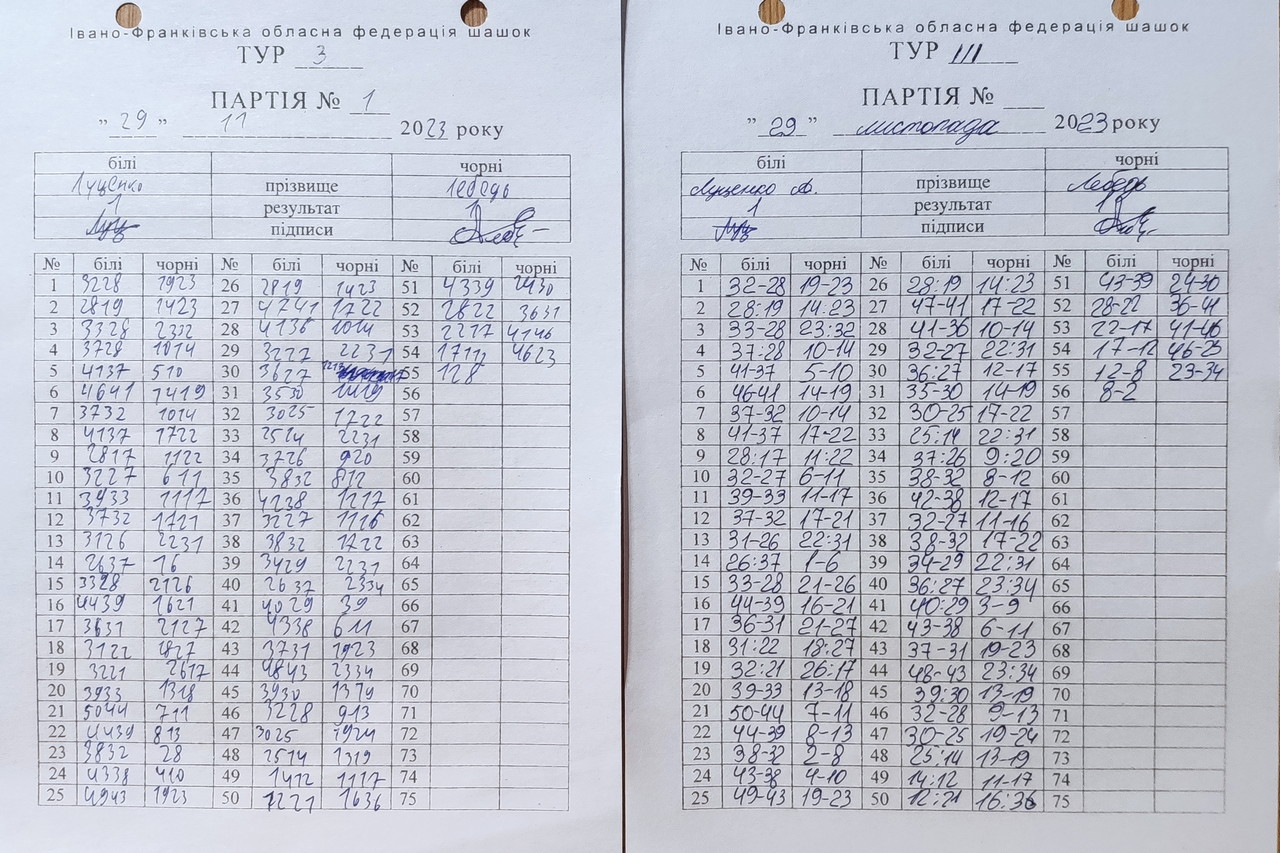 Івано-Франківська обласна федерація шашок
ТУР 3
ПАРТІЯ № 1
"29" 11 2023 року
білі чорні
Луценко прізвище Лебедь
1 результат 1
підписи
№ білі чорні № білі чорні № білі чорні
1 3228 1923 26 2819 1423 51 4339 2430
2 2819 1423 27 4741 1722 52 2822 3631
3 3328 2332 28 4136 1014 53 2217 4146
4 3728 1014 29 3227 2231 54 1712 4623
5 4137 510 30 3627 1217 55 128
6 4641 1419 31 3530 1419 56
7 3732 1014 32 3025 1722 57
8 4137 1722 33 2514 2231 58
9 2817 1122 34 3726 920 59
10 3227 611 35 3832 812 60
11 3933 1117 36 4238 1217 61
12 3732 1721 37 3227 1116 62
13 3126 2231 38 3832 1722 63
14 2637 16 39 3429 2231 64
15 3328 2126 40 2637 2334 65
16 4439 1621 41 4029 39 66
17 3631 2127 42 4338 611 67
18 3122 1827 43 3731 1923 68
19 3221 2617 44 4843 2334 69
20 3933 1318 45 3930 1319 70
21 5044 711 46 3228 913 71
22 4439 813 47 3025 1924 72
23 3832 28 48 2514 1319 73
24 4338 410 49 1412 1117 74
25 4943 1923 50 1221 1636 75
Івано-Франківська обласна федерація шашок
ТУР III
ПАРТІЯ №
"29" листопада 2023 року
білі чорні
Луценко А. прізвище Лебедь
1 результат 1
підписи
№ білі чорні № білі чорні № білі чорні
1 32-28 19-23 26 28:19 14:23 51 43-39 24-30
2 28:19 14:23 27 47-41 17-22 52 28-22 36-41
3 33-28 23:32 28 41-36 10-14 53 22-17 41-46
4 37:28 10-14 29 32-27 22:31 54 17-12 46-23
5 41-37 5-10 30 36:27 12-17 55 12-8 23-34
6 46-41 14-19 31 35-30 14-19 56 8-2
7 37-32 10-14 32 30-25 17-22 57
8 41-37 17-22 33 25:14 22:31 58
9 28:17 11:22 34 37:26 9:20 59
10 32-27 6-11 35 38-32 8-12 60
11 39-33 11-17 36 42-38 12-17 61
12 37-32 17-21 37 32-27 11-16 62
13 31-26 22:31 38 38-32 17-22 63
14 26:37 1-6 39 34-29 22:31 64
15 33-28 21-26 40 36:27 23:34 65
16 44-39 16-21 41 40:29 3-9 66
17 36-31 21-27 42 43-38 6-11 67
18 31:22 18:27 43 37-31 19-23 68
19 32:21 26:17 44 48-43 23:34 69
20 39-33 13-18 45 39:30 13-19 70
21 50-44 7-11 46 32-28 9-13 71
22 44-39 8-13 47 30-25 19-24 72
23 38-32 2-8 48 25:14 13-19 73
24 43-38 4-10 49 14:12 11-17 74
25 49-43 19-23 50 12:21 16:36 75